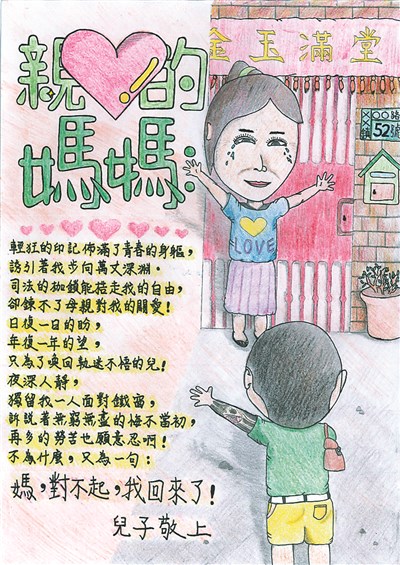 親愛的
媽媽：
金玉滿堂
路
52號
LOVE
輕狂的印記佈滿了青春的身軀，
誘引著我步向萬丈深淵。
司法的枷鎖能捁走我的自由，
卻鍊不了母親對我的關愛！
日復一日的盼，
年復一年的望，
只為了喚回執迷不悟的兒！
夜深人靜，
獨留我一人面對鐵窗，
訴說著無窮無盡的悔不當初，
再多的勞苦也願意忍啊！
不為什麼，只為一句：
媽，對不起，我回來了！
兒子敬上